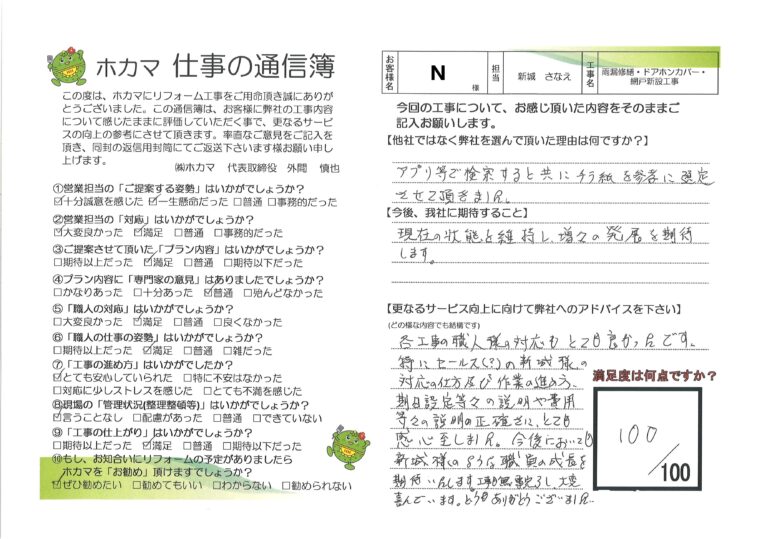 ホカマ 仕事の通信簿
この度は、ホカマにリフォーム工事をご用命頂き誠にありが
とうございました。この通信簿は、お客様に弊社の工事内容
について感じたままに評価していただく事で、更なるサービ
スの向上の参考にさせて頂きます。率直なご意見をご記入を
頂き、同封の返信用封筒にてご返送下さいます様お願い申し
上げます。
㈱ホカマ 代表取締役 外間 慎也
①営業担当の「ご提案する姿勢」はいかがでしょうか?
☑十分誠意を感じた ☑一生懸命だった □普通 □事務的だった
②営業担当の「対応」はいかがでしょうか?
☑大変良かった ☑満足 □普通 □事務的だった
③ご提案させて頂いた「プラン内容」はいかがでしょうか?
□期待以上だった ☑満足 □普通 □期待以下だった
④プラン内容に「専門家の意見」はありましたでしょうか?
□かなりあった □十分あった ☑普通 □殆んどなかった
⑤「職人の対応」はいかがでしょうか?
□大変良かった ☑満足 □普通 □良くなかった
⑥「職人の仕事の姿勢」はいかがでしょうか?
□期待以上だった ☑満足 □普通 □雑だった
⑦「工事の進め方」はいかがでしたか?
☑とても安心していられた □特に不安はなかった
□対応に少しストレスを感じた □とても不満を感じた
⑧現場の「管理状況(整理整頓等)」はいかがでしょうか?
☑言うことなし □配慮があった □普通 □できていない
⑨「工事の仕上がり」はいかがでしょうか?
□期待以上だった ☑満足 □普通 □期待以下だった
⑩もし、お知合いにリフォームの予定がありましたら
ホカマを「お勧め」頂けますでしょうか?
☑ぜひ勧めたい □勧めてもいい □わからない □勧められない
お客様名 N 様 担当 新城 さなえ 工事名 雨漏修繕・ドアホンカバー・
網戸新設工事
今回の工事について、お感じ頂いた内容をそのままご
記入お願いします。
【他社ではなく弊社を選んで頂いた理由は何ですか?】
アプリ等で検索すると共にチラ紙を参考に選定
させて頂きました。
【今後、我社に期待すること】
現在の状態を維持し、増々の発展を期待
します。
【更なるサービス向上に向けて弊社へのアドバイスを下さい】
(どの様な内容でも結構です)
各工事の職人様の対応もとても良かったです。
特にセールス(?)の新城様の
対応の仕方及び作業の進め方、
期日設定等々の説明や費用
等々の説明の正確さに、とても
感心至しました。今後においても
新城様のような職員の成長を
期待いたします。工事無事完了し、大変
喜んでいます。どうもありがとうございました。
満足度は何点ですか?
100
/100